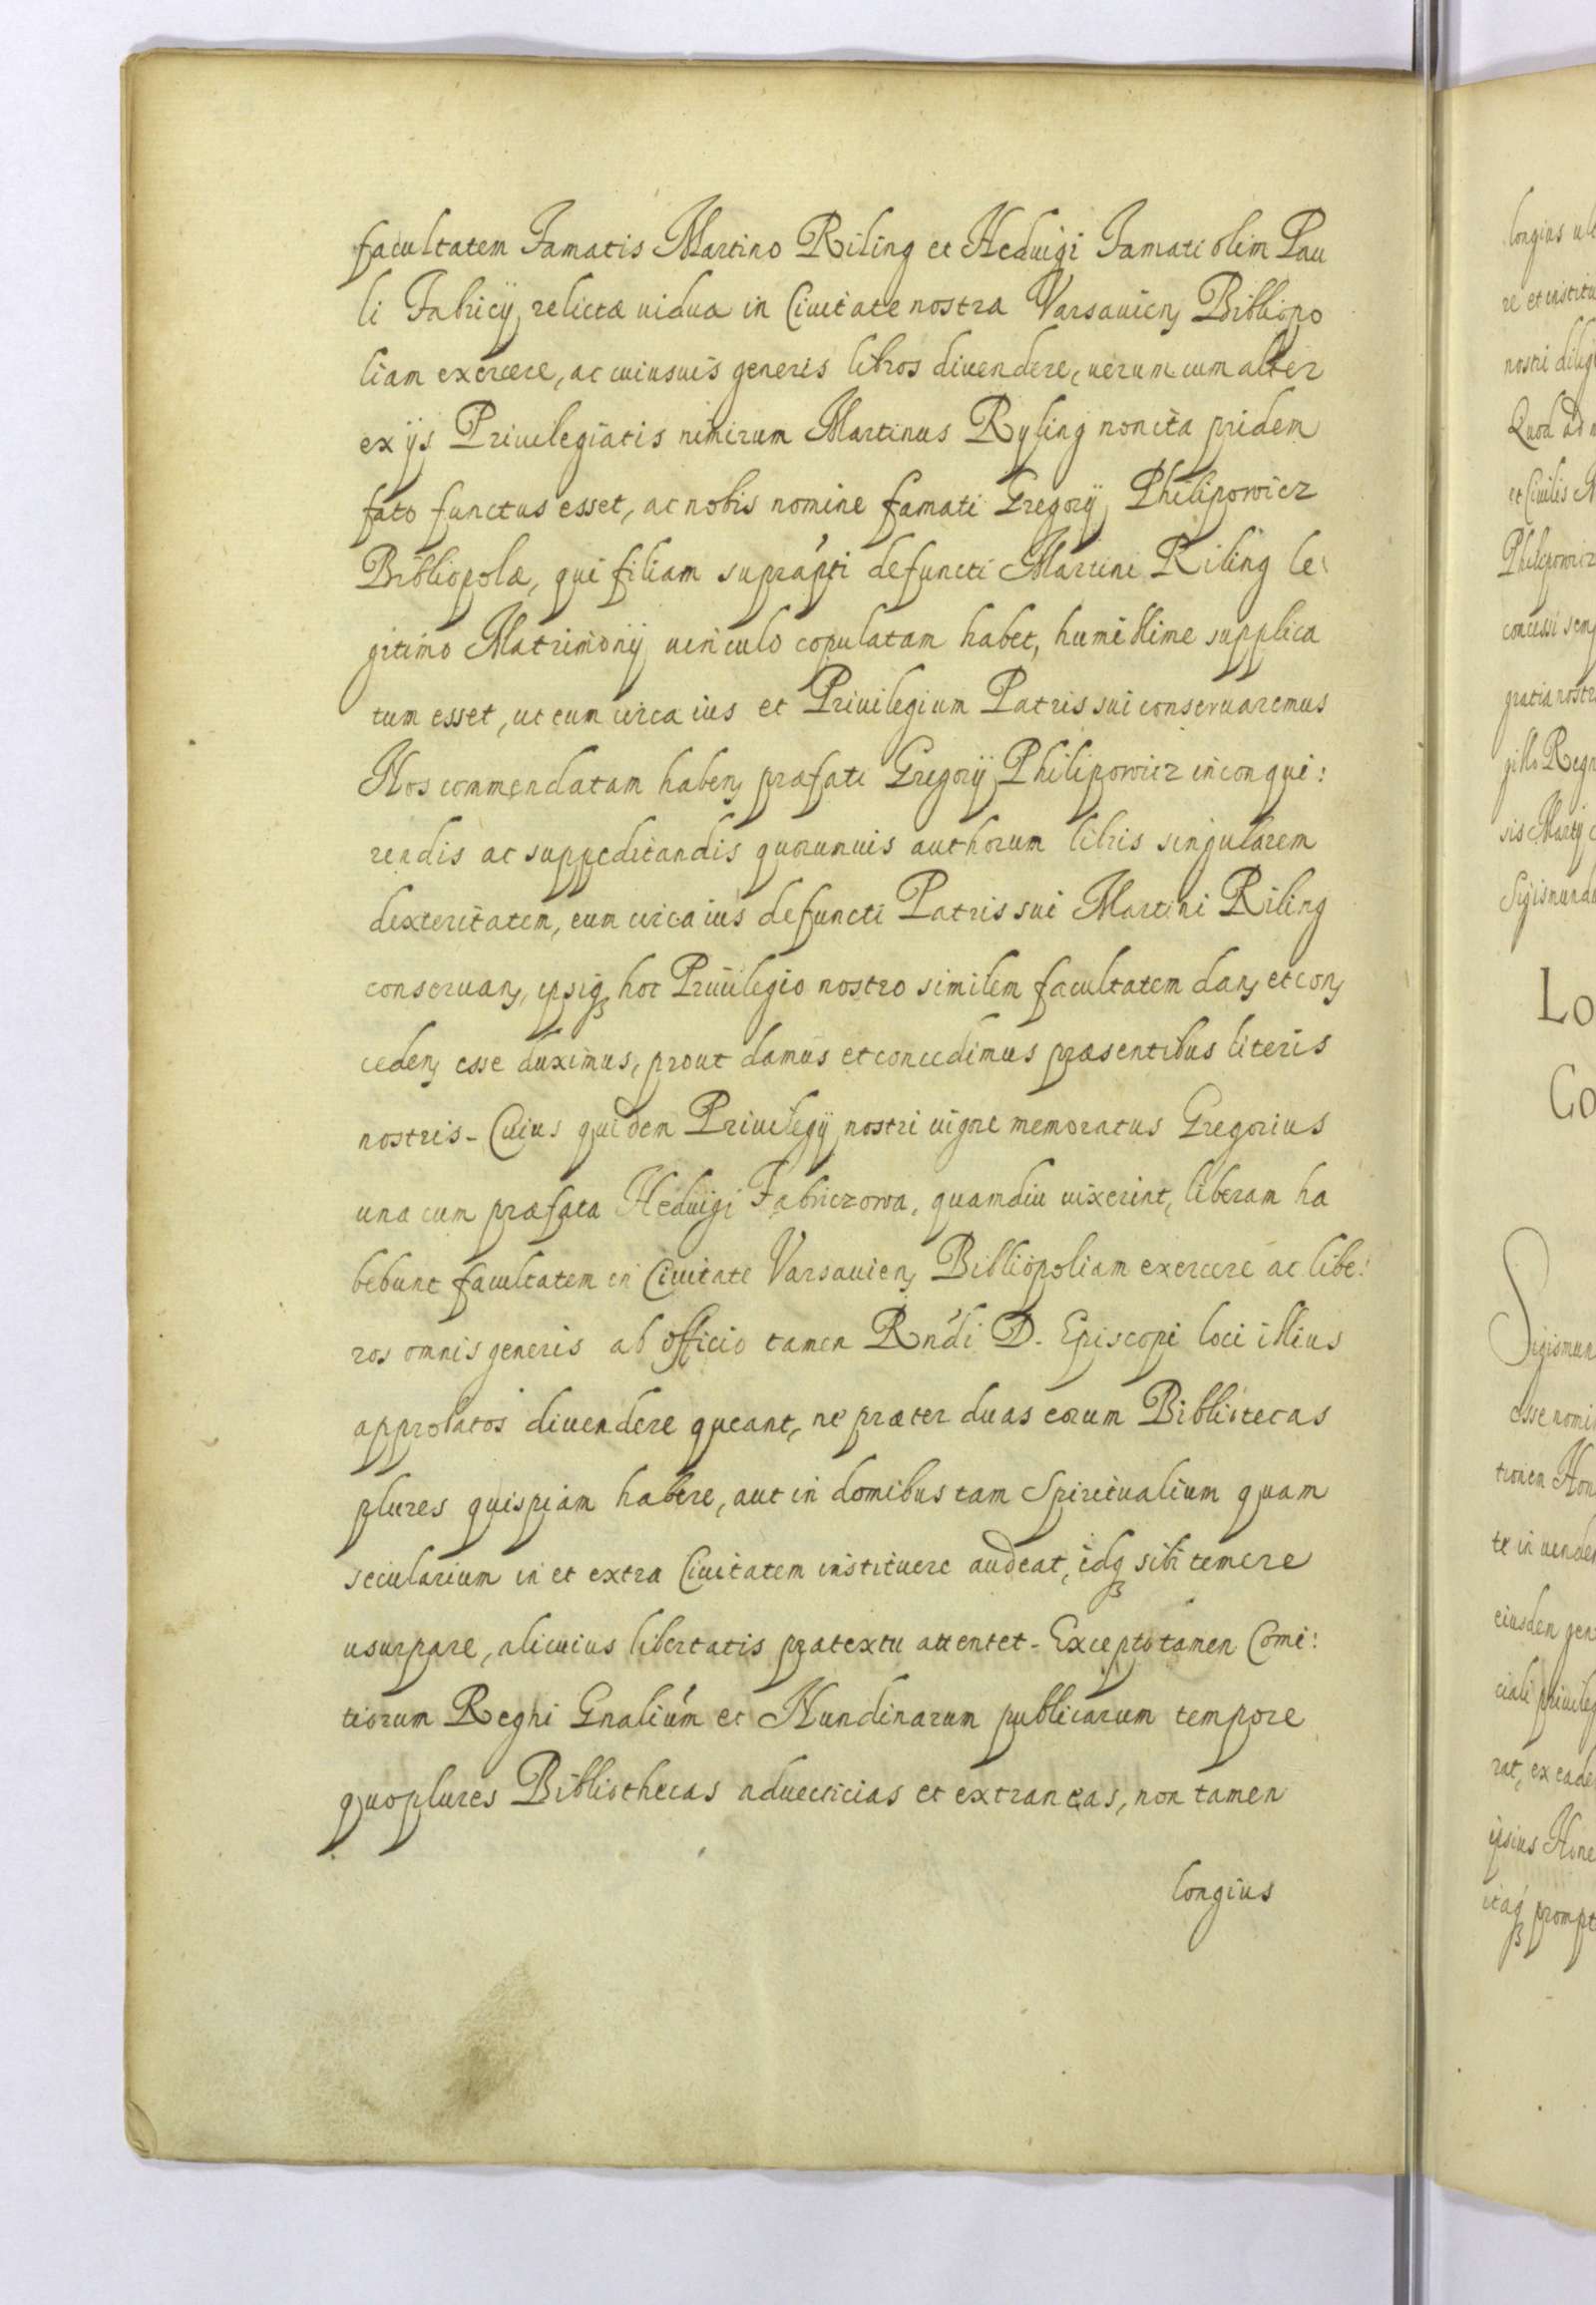 facultatem Famatis Martino Riling et Heduigi Famati olim Pau
li Fabricij relictæ uiduæ in Ciuitate nostra Varsauien, Bibliopo
liam exercere, ac cuiusuis generis libros diuendere, uerum cum alter
ex ijs Priuilegiatis nimirum Martinus Ryling non ita pridem
fato functus esset, ac nobis nomine famati Gregorij Philipowicz
Bibliopolæ, qui filiam suprapti defuncti Martini Riling le
gitimo Matrimonij uinculo copulatam habet, humillime supplica
tum esset, ut eum circa ius et Priuilegium Patris sui conseruaremus
Nos commendatam haben, præfati Gregorij Philipowicz in conqui:
rendis ac suppeditandis quorumuis authorum libris singularem
dexteritatem, eum circa ius defuncti Patris sui Martini Riling
conseruan, ipsiq hoc Priuilegio nostro similem facultatem dan, et con
ceden, esse duximus, prout damus et concedimus præsentibus literis
nostris - Cuius quidem Priuilegij nostri uigore memoratus Gregorius
una cum præfata Heduigi Fabriczowa, quamdiu uixerint, liberam ha
bebunt facultatem in Ciuitate Varsauien, Bibliopoliam exercere ac libe:
ros omnis generis ab officio tamen Rndi D. Episcopi loci illius
approbatos diuendere queant, ne præter duas eorum Bibliotecas
plures quispiam habere, aut in domibus tam Spiritualium quam
secularium in et extra Ciuitatem instituere audeat, idq sibi temere
usurpare, alicuius libertatis prætextu attentet - Excepto tamen Comi:
tiorum Regni Gnalium et Nundinarum publicarum tempore
quo plures Bibliothecas aduecticias et extraneas, non tamen
longius
longius
re et institu
nostri
Quod ad
et Ciuilis
Philipowicz
gratia nostr
gillo Regn
sis Martij
Sigismund
Lo
Co
Sigismun
esse nomi
tionem Hon
te in uende
eiusdem gen
ciali priuileg
rat, ex eade
ipsius Hone
itaq prompt